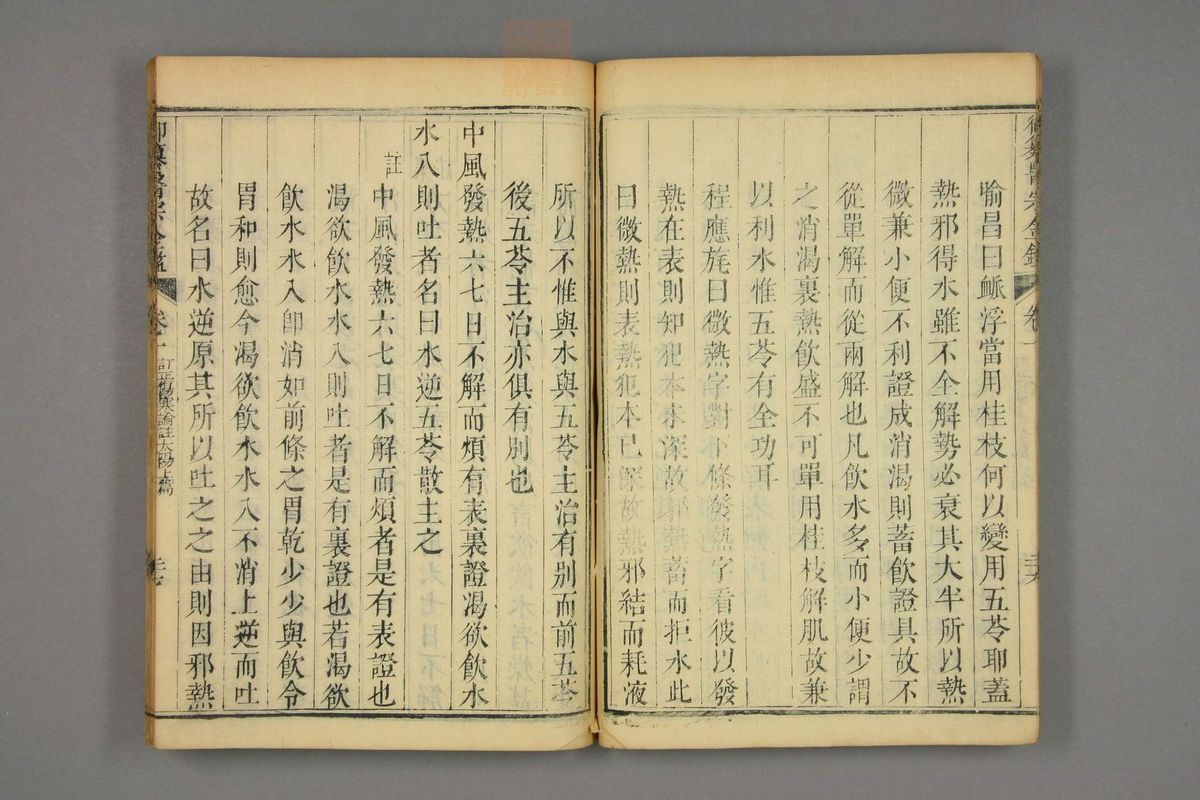 喻昌曰𧖴浮當用桂枝何以變用五苓耶蓋
熱邪得水雖不全解勢必衰其大半所以熱
微兼小便不利證成消渴則蓄飲證具故不
從單解而從兩解也凡飲水多而小便少謂
之消渴裏熱飲盛不可單用桂枝解肌故兼
以利水惟五苓有全功耳
程應旄曰微熱字對下條發熱字看彼以發
熱在表則知犯本未深故邪熱蓄而拒水此
曰微熱則表熱犯本已深故熱邪結而耗液
所以不惟與水與五苓主治有別而前五苓
後五苓主治亦俱有別也
中風發熱六七日不解而煩有表裏證渴欲飲水
水入則吐者名曰水逆五苓散主之
註 中風發熱六七日不解而煩者是有表證也
渴欲飲水水入則吐者是有裏證也若渴欲
飲水水入卽消如前條之胃乾少少與飲令
胃和則愈今渴欲飲水水入不消上逆而吐
故名曰水逆原其所以吐之之由則因邪熱
御纂醫宗金鑑
卷一
訂正傷寒論註太陽上篇